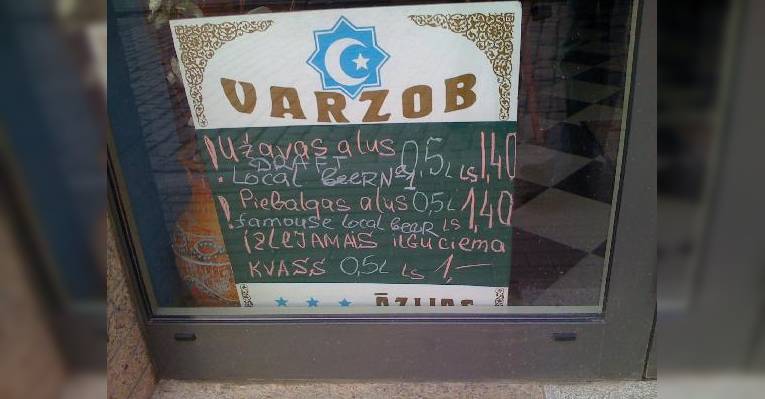 VARZOB
! Užavas alus 0,5L Ls 1,40
DRAFT
! Local beer №1
! Piebalgas alus 0,5L Ls 1,40
famouse local beer
IZLEJAMAIS ILGUCIEMA
KVASS 0,5L Ls 1,—
ĀZIJAS